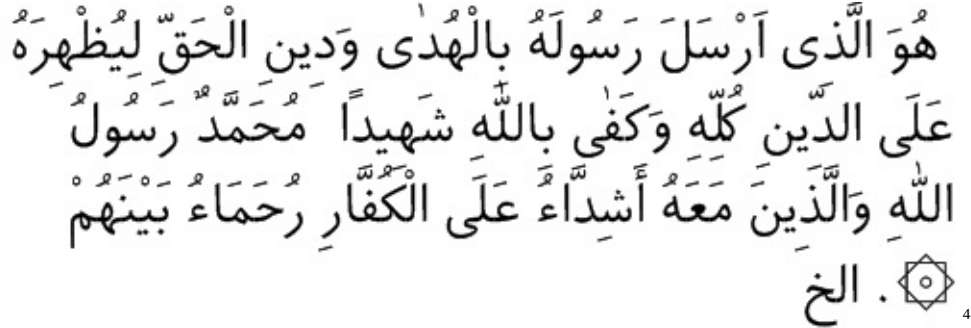 هُوَ الَّذى اَرْسَلَ رَسُولَهُ بِالْهُدٰى وَدِينِ الْحَقِّ لِيُظْهِرَهُ
عَلَى الدّينِ كُلِّهِ وَكَفٰى بِاللّٰهِ شَهيداً مُحَمَّدٌ رَسُولُ
اللّٰهِ وَالَّذِينَ مَعَهُ أَشِدَّاءُ عَلَى الْكُفَّارِ رُحَمَاءُ بَيْنَهُمْ
۞ . الخ
4